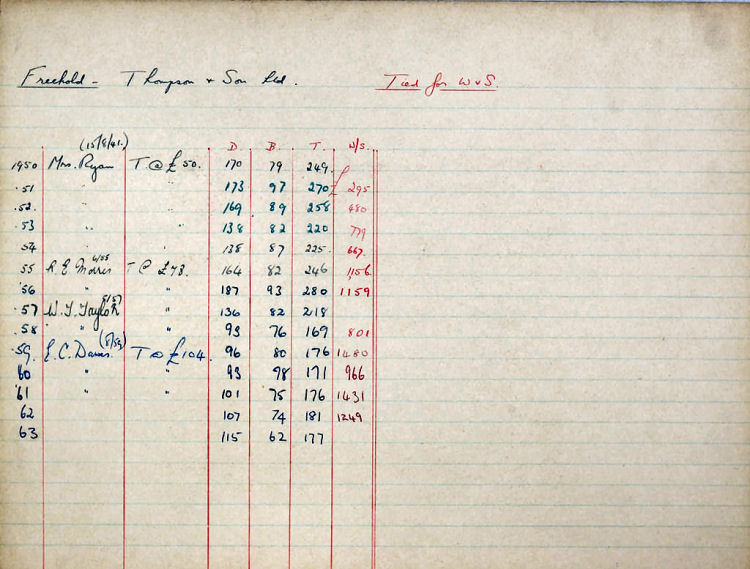 Freehold - Thompson & Son Ltd. Tied for W & S.
(15/8/41.) D. B. T. W/S.
1950 Mrs. Ryan T @ £50. 170 79 249
.51 " " 173 97 270 £ 295
.52. " " 169 89 258 480
.53 " " 138 82 220 779
54 " " 138 87 225. 667.
55 R. E. Morris 6/55 T @ £78. 164 82 246 1,156
'56 " " 187 93 280 1159
.57 W. J. Taylor 5/57 " 136 82 218
.58 " " 93 76 169 801
.59. E. C. Davies. (8/59) T @ £104. 96 80 176 1480
60 " " 93 78 171 966
'61 " " 101 75 176 1431
62 107 74 181 1249
63 115 62 177